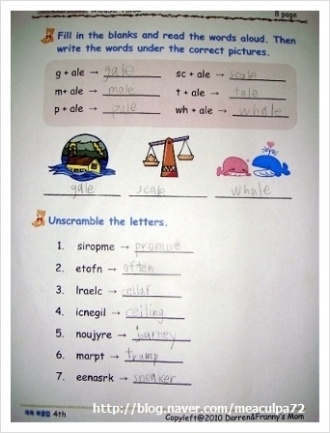 8 page
Fill in the blanks and read the words aloud. Then
write the words under the correct pictures.
g + ale → gale sc + ale → scale
m+ ale → male t + ale → tale
p + ale → pale wh + ale → whale
gale scale whale
Unscramble the letters.
1. siropme → promise
2. etofn → often
3. lraelc → cellar
4. icnegil → ceiling
5. noujyre → journey
6. marpt → tramp
7. eenasrk → sneaker
4th
http://blog.naver.com/meaculpa72
Copyleft@2010 Darren&Franny's Mom